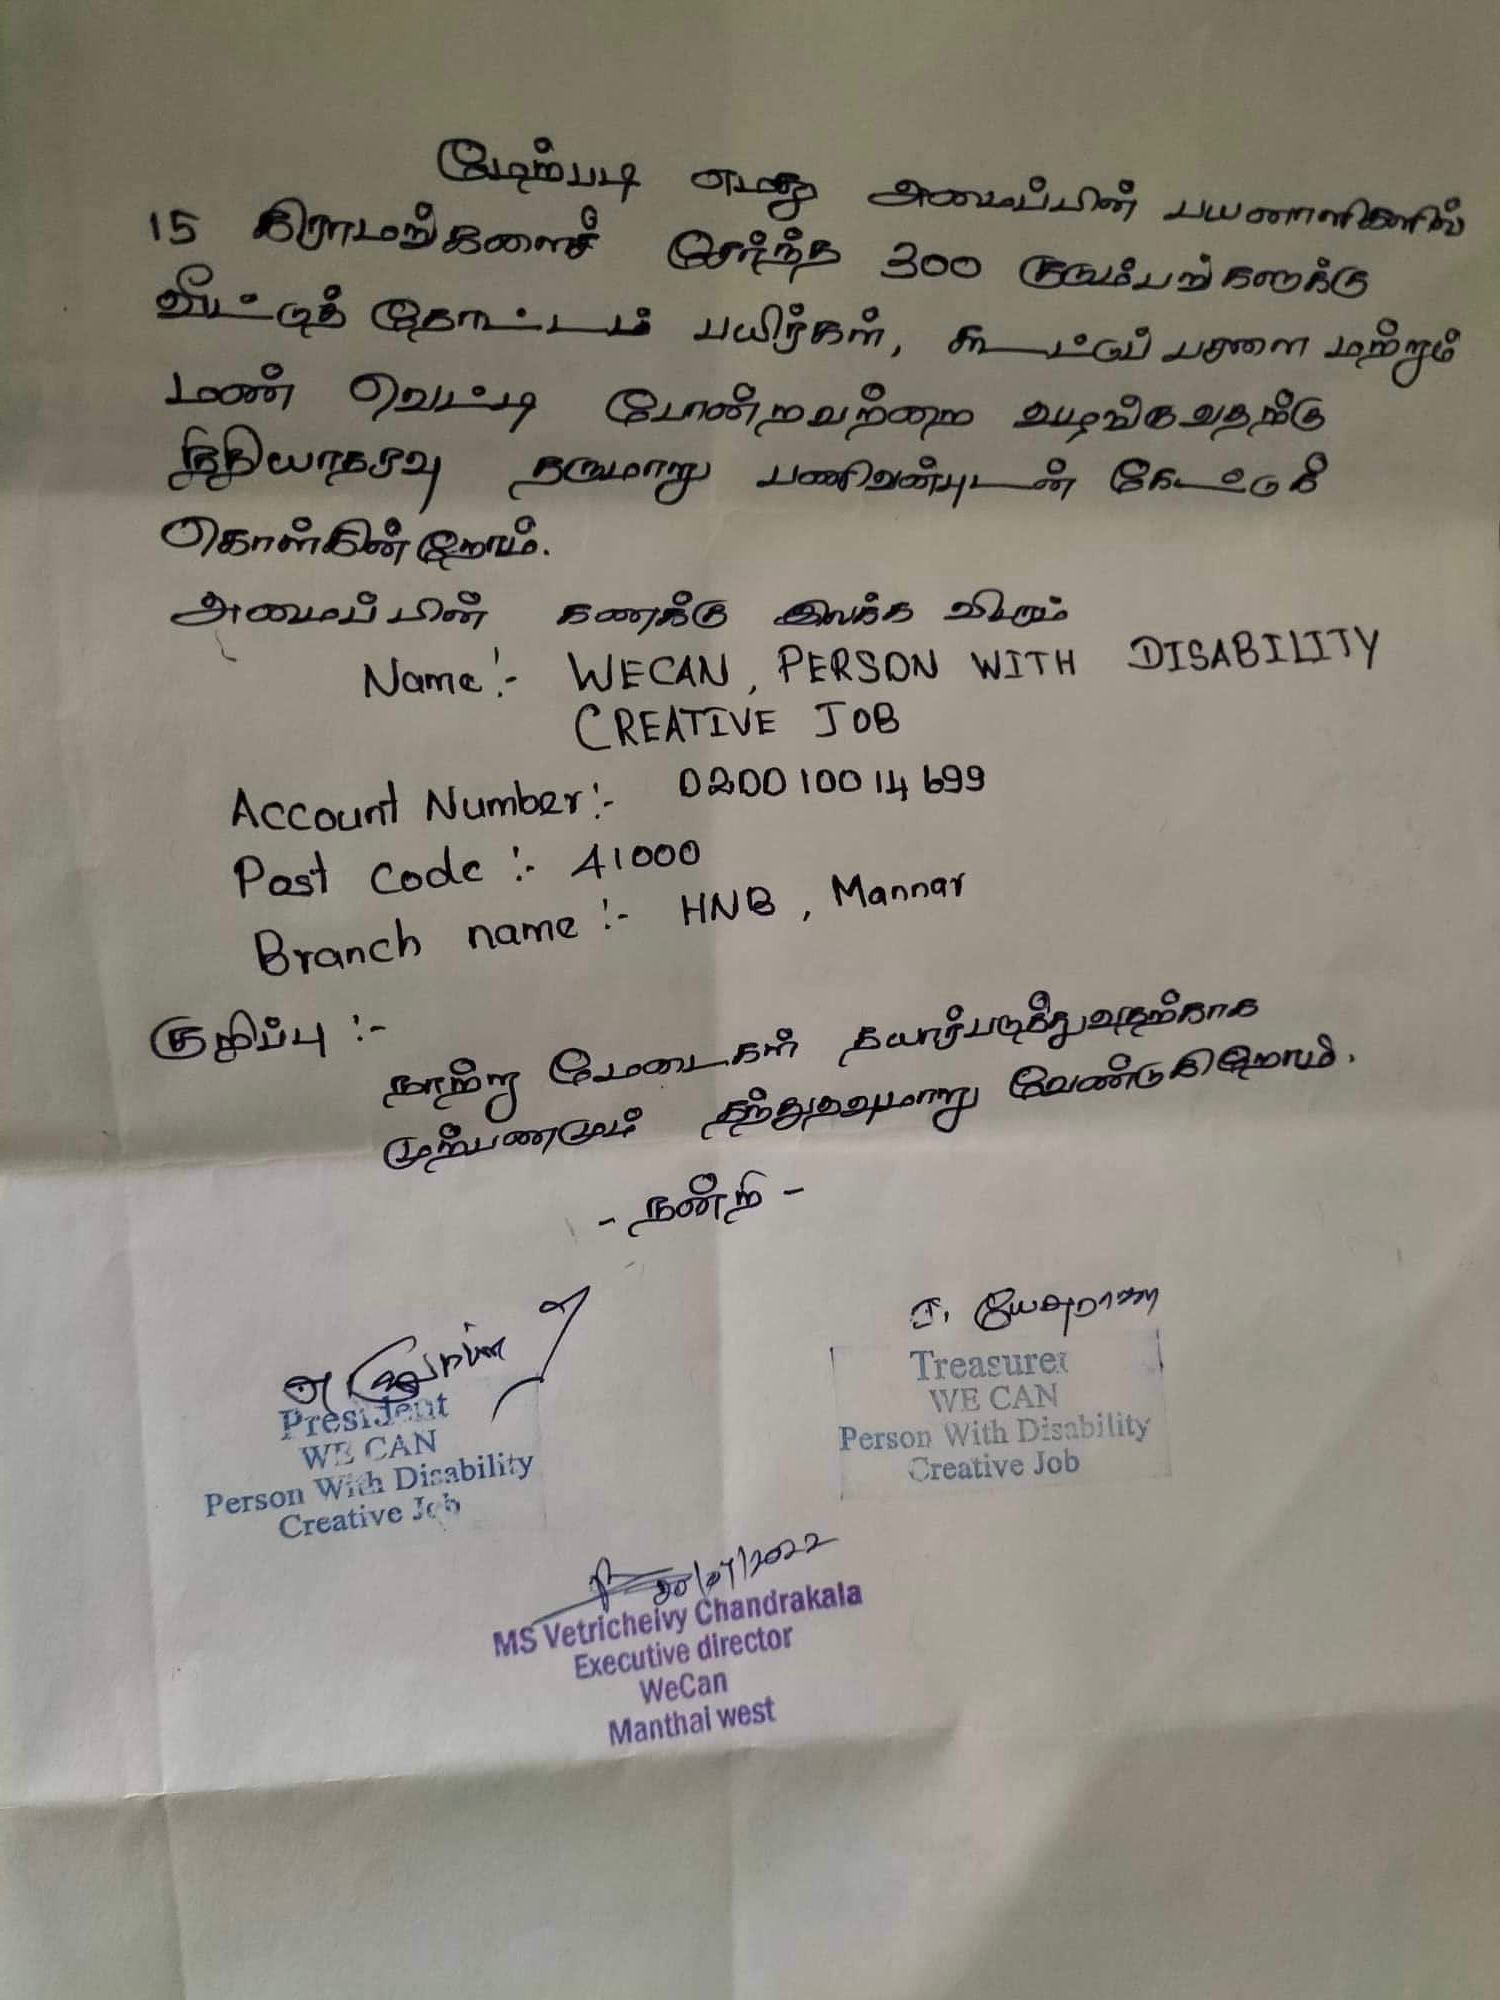 மேற்படி எமது அமைப்பின் பயனாளிகளில்
15 கிராமங்களைச் சேர்ந்த 300 குடும்பங்களுக்கு
வீட்டுத் தோட்டம் பயிர்கள், கூட்டுப் பசளை மற்றும்
மண் வெட்டி போன்றவற்றை வழங்குவதற்கு
நிதியாதரவு தருமாறு பணிவன்புடன் கேட்டுக்
கொள்கின்றோம்.
அமைப்பின் கணக்கு இலக்க விபரம்
Name:- WECAN, PERSON WITH DISABILITY
CREATIVE JOB
Account Number:- 020010014699
Post Code:- 41000
Branch name:- HNB, Mannar
குறிப்பு:-
நாற்று மேடைகள் தயார்படுத்துவதற்காக
முற்பணமும் தந்துதவுமாறு வேண்டுகிறோம்.
- நன்றி -
President
WE CAN
Person With Disability
Creative Job
ச. யேசுராசா
Treasurer
WE CAN
Person With Disability
Creative Job
20/07/2022
MS Vetrichelvy Chandrakala
Executive director
WeCan
Manthai west